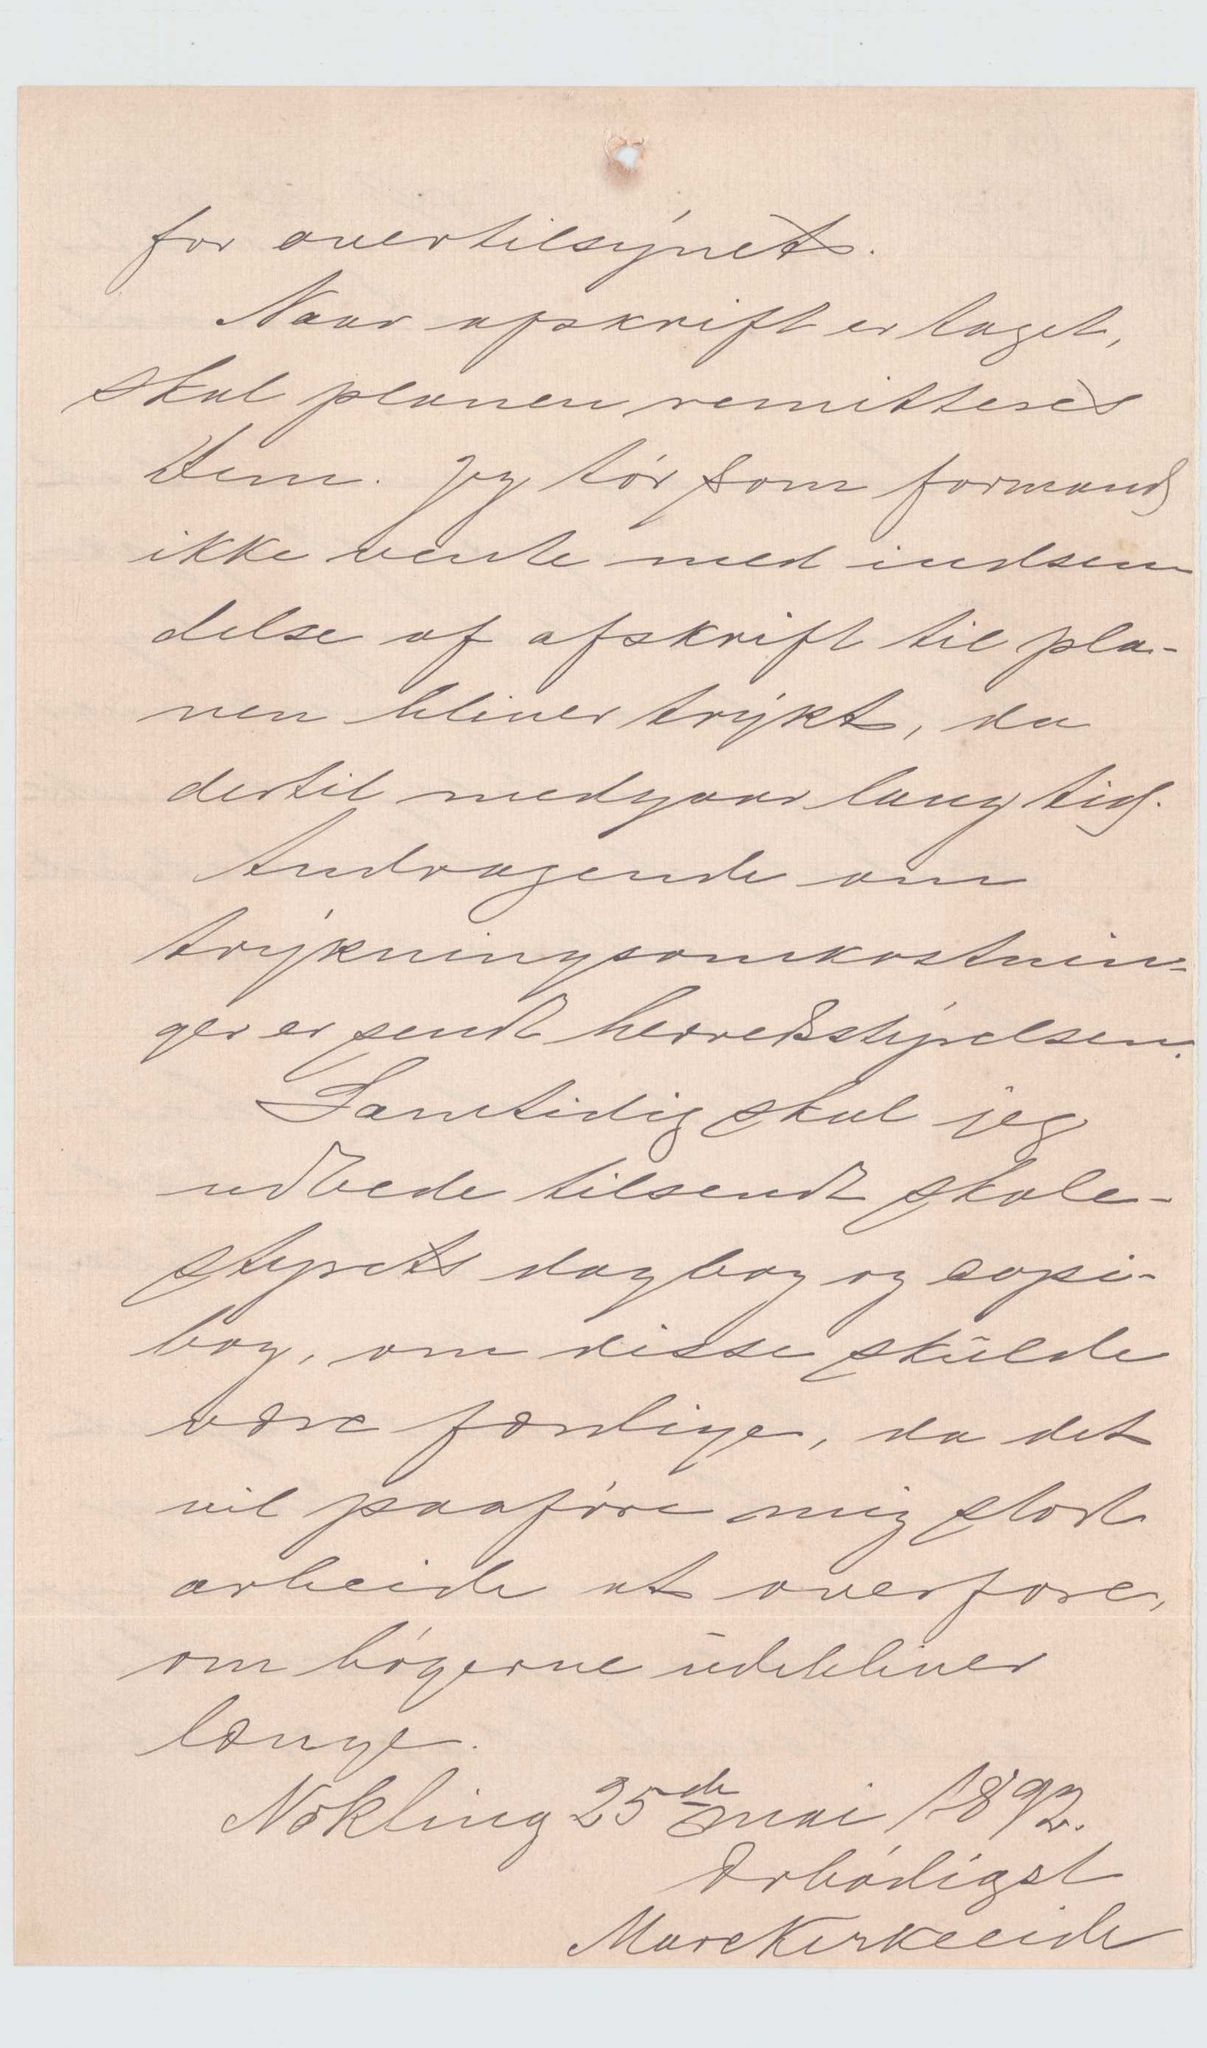 for overtilsynet.
Naar afskrift er taget,
skal planen remitteres
Dem. Jeg tør som formand
ikke vente med indsen
delse af afskrift til pla-
nen bliver trykt, da
dertil medgaar lang tid.
Andragende om
trykningsomkostnin-
ger er sendt herredsstyrelsen.
Samtidig skal jeg
udbede tilsendt skole-
styrets dagbog og copi-
bog, om disse skulde
være færdige, da det
vil paaføre mig stort
arbeide at overføre,
om bøgerne udebliver
længe.
Nøkling 25de mai 1892.
Ærbødigst